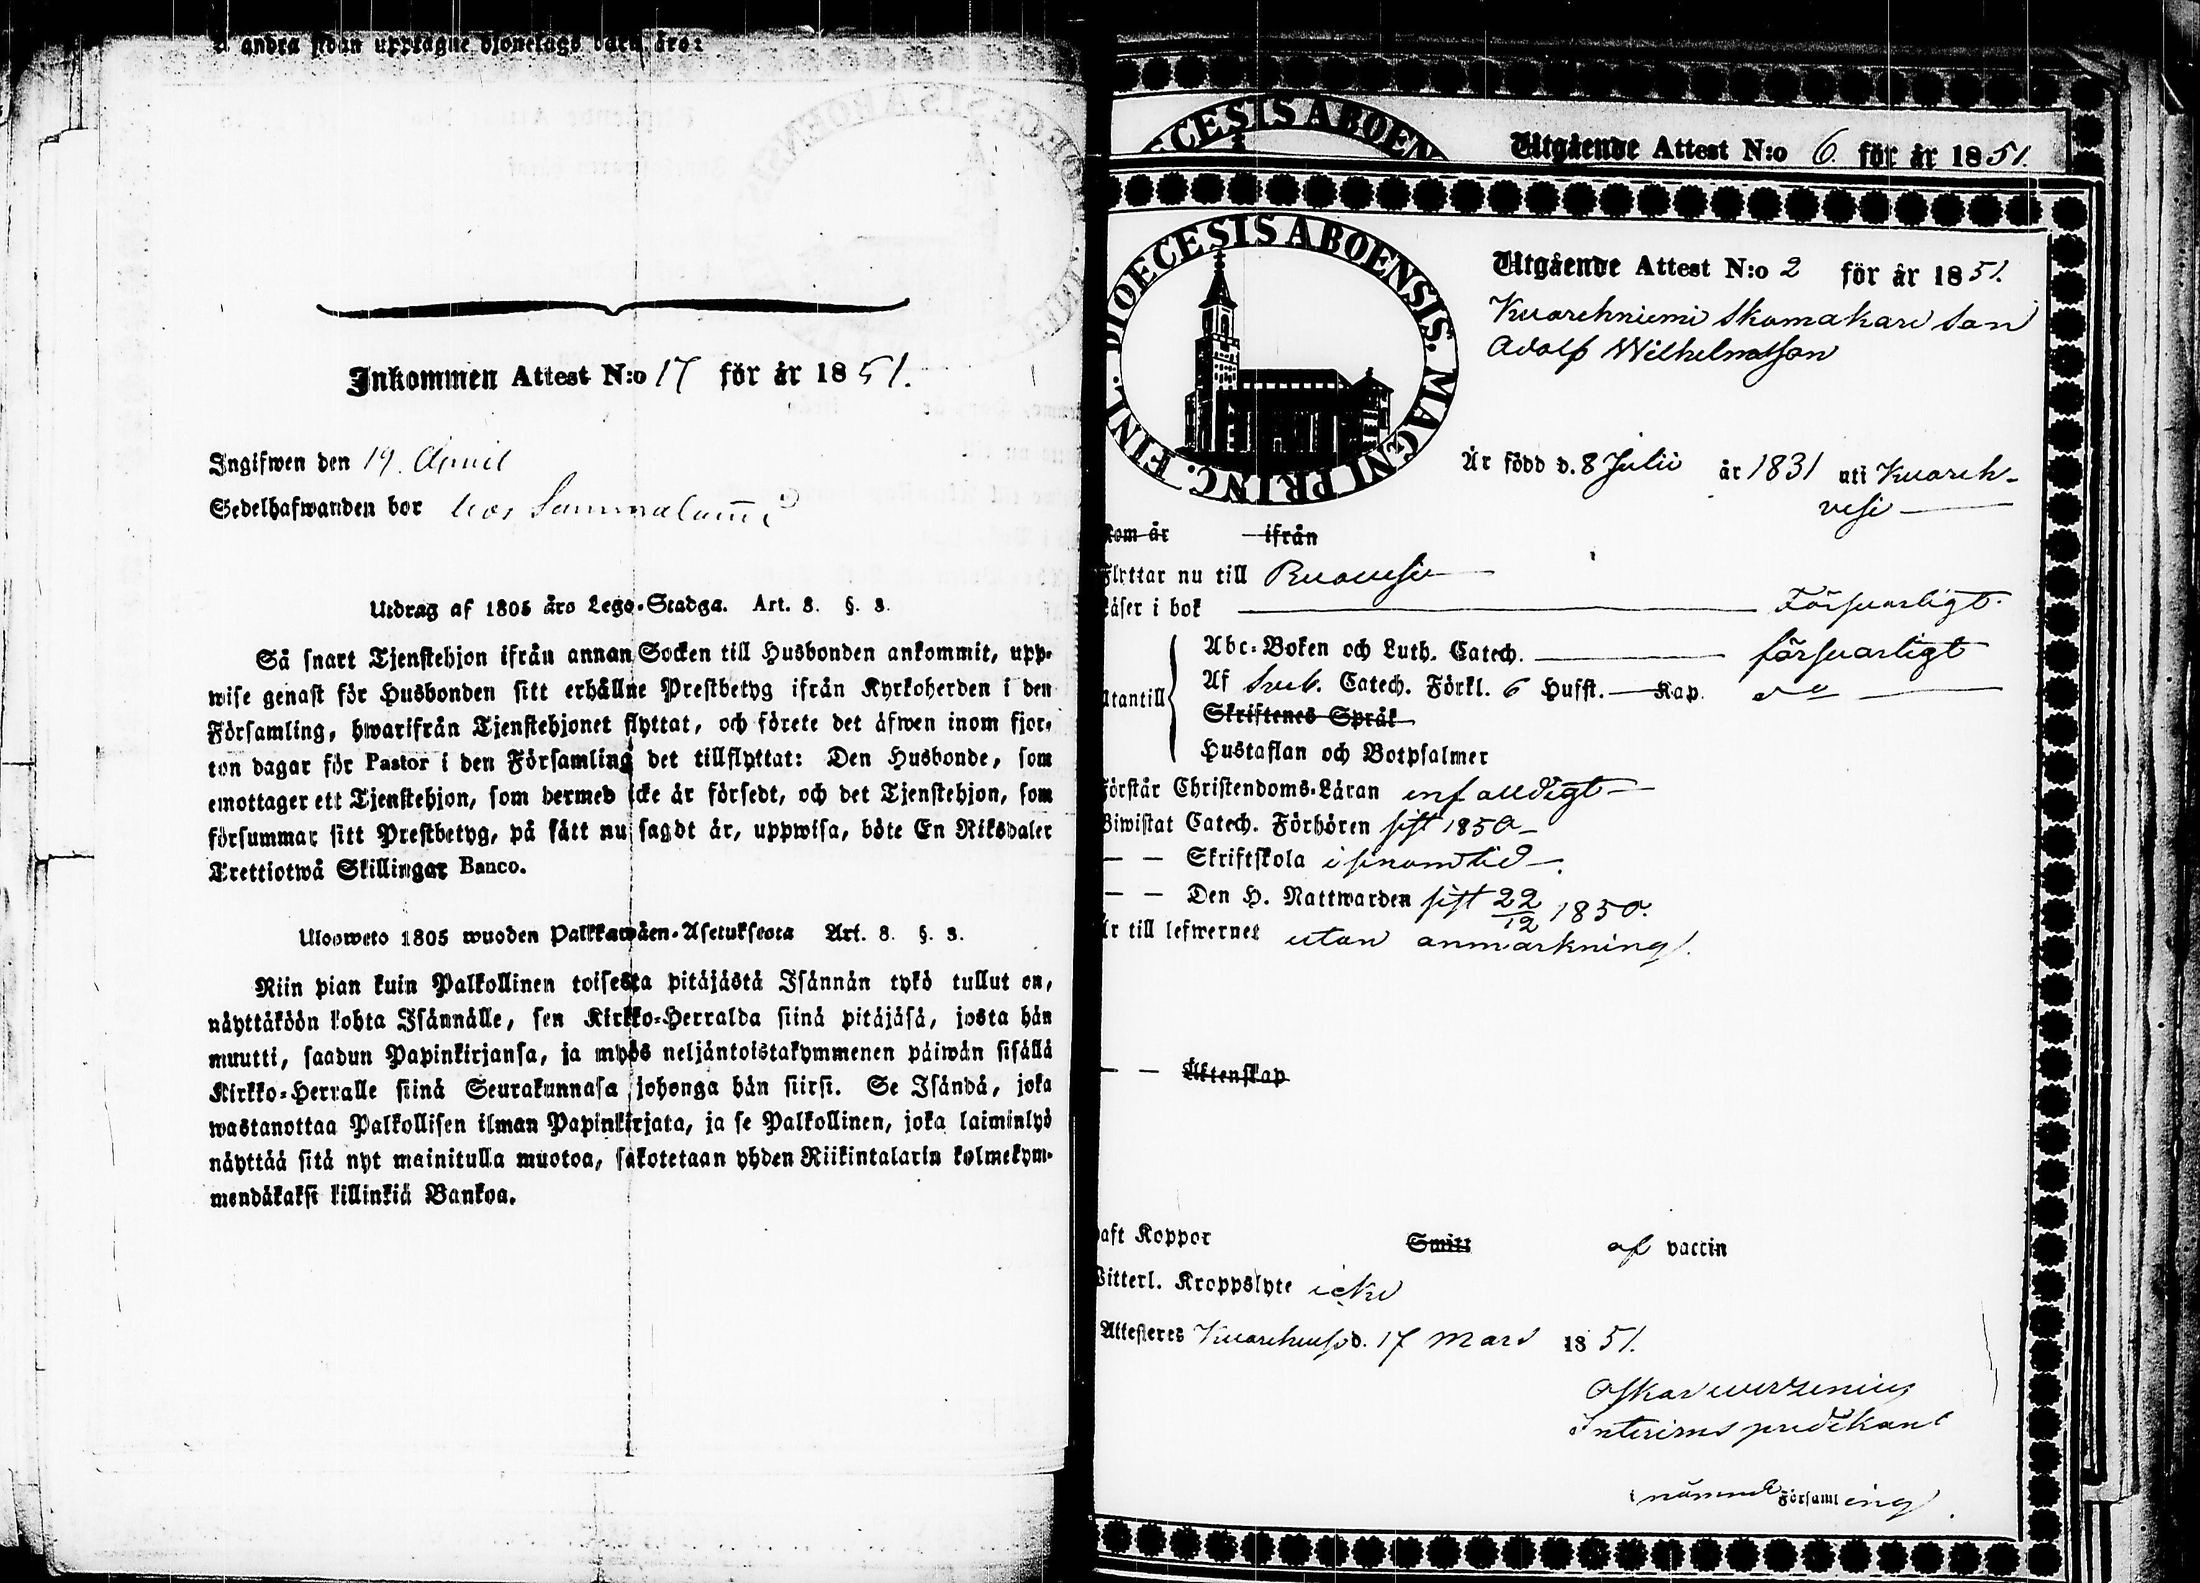 andra sidan upptagne hjonelags barn äro:
Inkommen Attest N:o 17 för år 1851.
Ingifwen den 19. April
Sedelhafwanden bor hos
Utdrag af 1805 års Lego-Stadga. Art. 8. §. 3.
Så snart Tjenstehjon ifrån annan Socken till Husbonden ankommit, upp-
wise genast för Husbonden sitt erhållne Prestbetyg ifrån Kyrkoherden i den
Församling, hwarifrån Tjenstehjonet flyttat, och förete det äfwen inom fjor-
ton dagar för Pastor i den Församling det tillflyttat: Den Husbonde, som
emottager ett Tjenstehjon, som dermed icke är försedt, och det Tjenstehjon, som
försummar sitt Prestbetyg, på sätt nu sagdt är, uppwisa, böte En Riksdaler
Trettiotwå Skillingar Banco.
Ulosweto 1805 wuoden Palkkawäen-Asetuksesta Art. 8. §. 3.
Niin pian kuin Palkollinen toisesta pitäjästä Isännän tykö tullut on,
näyttäköön kohta Isännälle, sen Kirkko-Herralda siinä pitäjäsä, josta hän
muutti, saadun Papinkirjansa, ja myös neljäntoistakymmenen päiwän sisällä
Kirkko-Herralle siinä Seurakunnasa johonga hän siirsi. Se Isändä, joka
wastanottaa Palkollisen ilman Papinkirjata, ja se Palkollinen, joka laiminlyö
näyttää sitä nyt mainitulla muotoa, sakotetaan yhden Riikintalarin kolmekym-
mendäkaksi killinkiä Bankoa.
CESIS ABOEN
Utgående Attest N:o 6. för år 1851.
DIOECESIS ABOENSIS. MAGNI PRINC. FINL.
Utgående Attest N:o 2 för år 1851.
Skomakare son
Adolf Wilhelmsson
Är född d. 8 Julii år 1831 uti Kuareh-
vesi
kom år ifrån
Flyttar nu till Ruovesi
Läser i bok Försvarligt.
Utantill
Abc-Boken och Luth. Catech. försvarligt
Af Sveb. Catech. Förkl. 6 Hufst. Kap. do
Skriftenes Språk
Hustaflan och Botpsalmer
Förstår Christendoms-Läran enfalldigt
Biwistat Catech. Förhören sist 1850
— — Skriftskola i sinom tid.
— — Den H. Nattwarden sist 22/12 1850.
Är till lefwernet utan anmärkning.
— — Äktenskap
haft Koppor Smitt af vaccin
Witterl. Kroppslyte icke
Attesteras d. 17 Mars 1851.
Oskar
Interims predikant
i nämnde Församling.